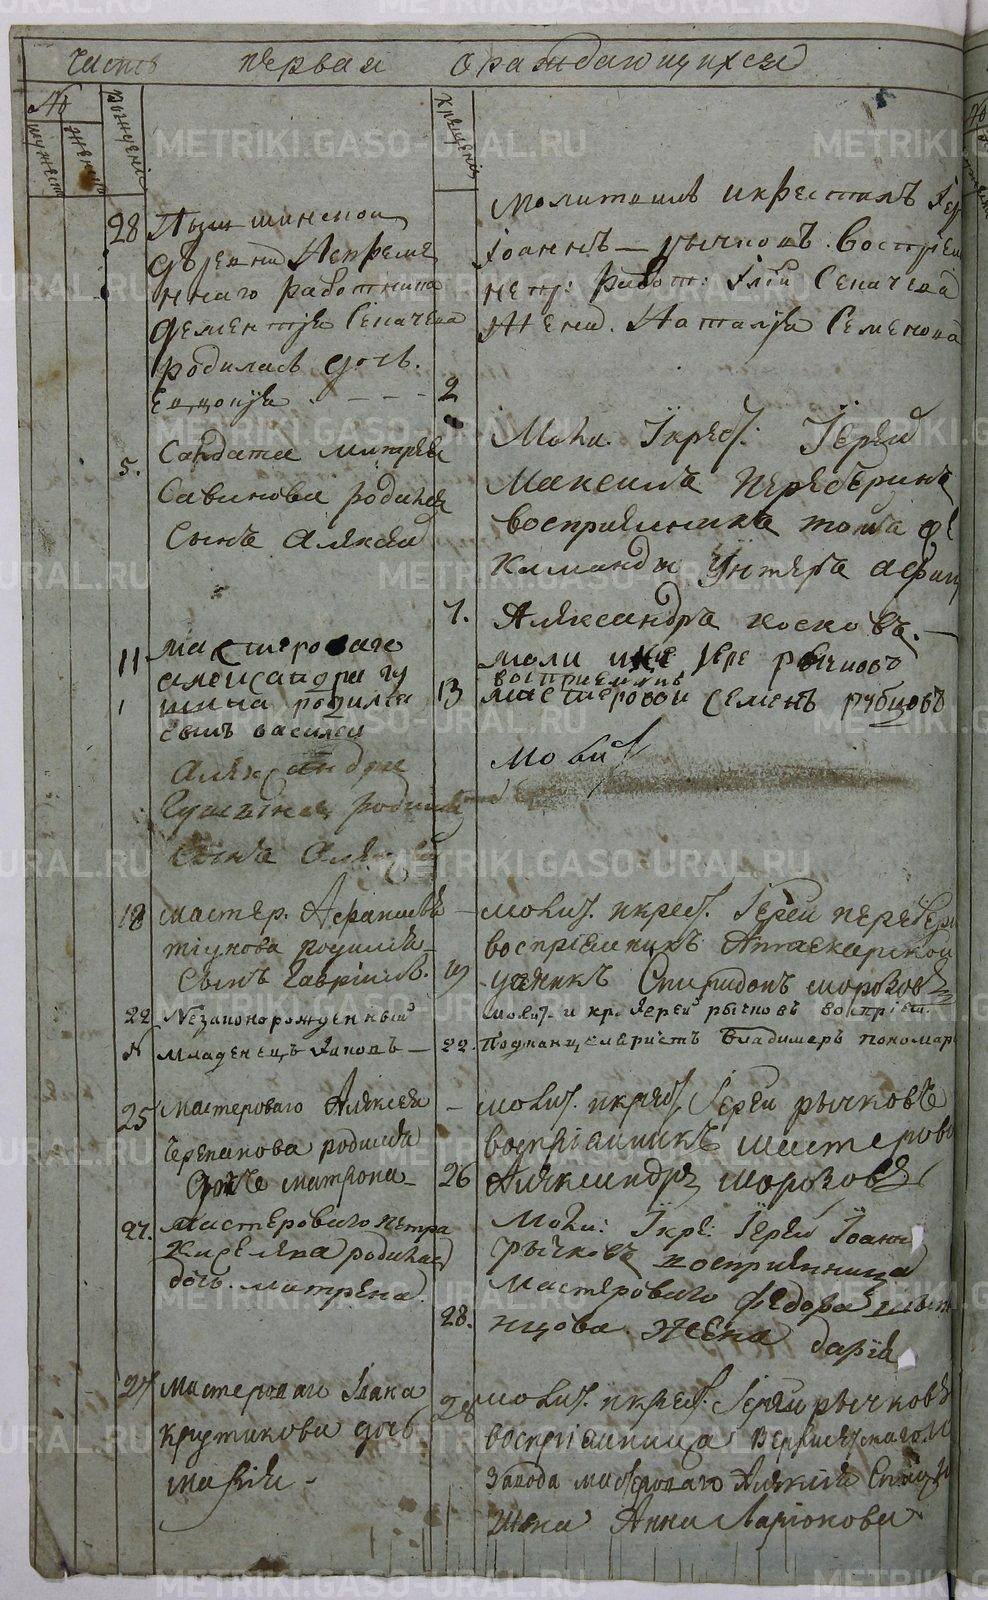 Часть первая о раждающихся
№
мужеск
женск
Рождения
Крещения
28 Пышминской
деревни Непреме
ннаго работника
Дементия Сепачева
родилась дочь
Евдокия 2
Молитвилъ и крестилъ Іер
Іоаннъ Рычковъ. Воспрiем
непр: работ: Сепачева
Жена. Наталия Семенова
5. Салдата
Савинова родился
Сынъ Алексей
7.
Моли. I крест: Iерей
Максимъ Перебѣринъ
восприемникъ тоша
Каманды Унтеръ афиц
Александръ Косковъ.
11 мастероваго
александра гу
щина родился
сынъ василей
13
моли кре рычковъ
восприемникъ
мастеровои Семенъ рубцовъ
Александра
Гущина родился
Сынъ Алексей
Молит
18 мастер. Афанасья
тиунова родился
Сынъ Гавріилъ. 19
молит. и крест. Iерей перебери
воспріемникъ Аптекарской
ученикъ Спиридонъ морозовъ
22 Незаконорожденный
младенецъ Іаковъ — 22.
молит. и кр. Iерей рычковъ воспріем.
Подканцеляристъ Владимеръ пономар
25 мастероваго Алексея
Черепанова родилась
Дочь матрона 26
молит. и крест. Iерей рычковъ
воспріемникъ мастерово
Александръ морозовъ
27. мастероваго петра
Киселева родилась
дочь. матрена. 28.
Моли: I кре: Iерей Iоаннъ
рычковъ восприемница
мастероваго Федора
нцова жена дарія
27 мастероваго Iвана
крутикова дочь
марія 28
молит. и крест. Iерей рычковъ
воспріемница Верхисетскаго
завода мастероваго Алексея
жена Анна Ларіонова
METRIKI.GASO-URAL.RU